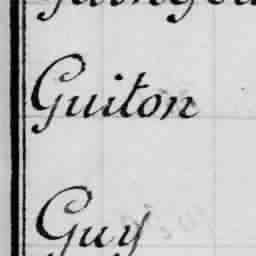 Guiton
Guy